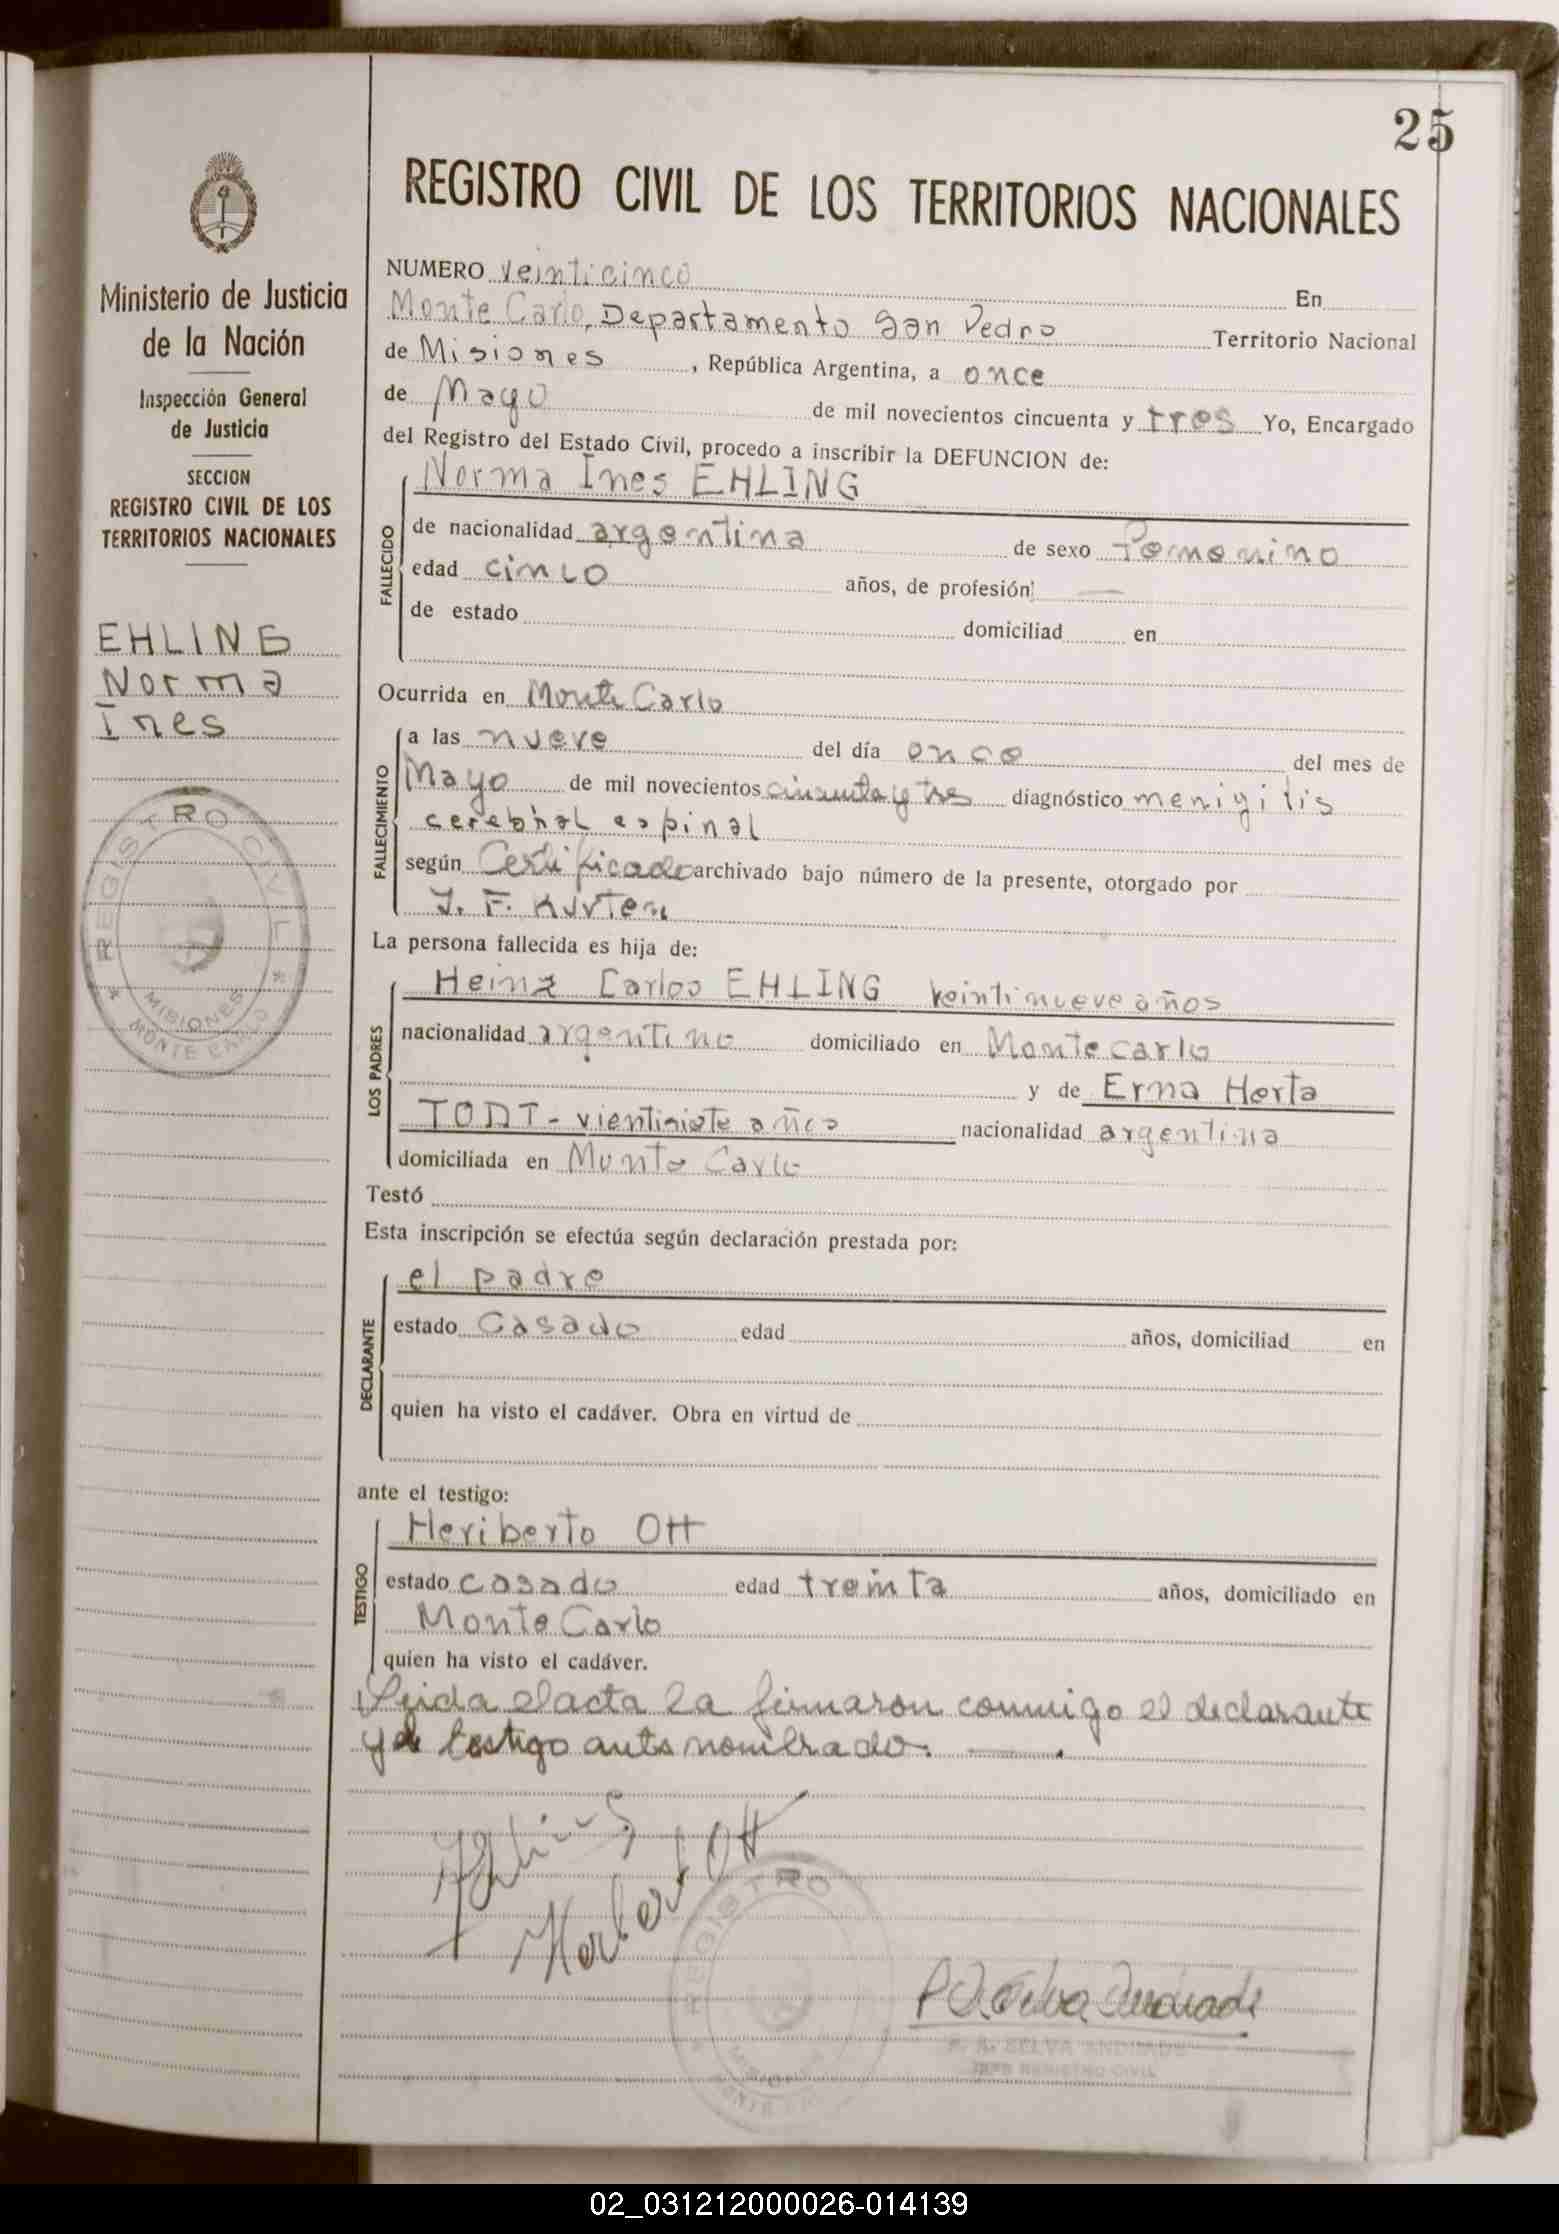 25
REGISTRO CIVIL DE LOS TERRITORIOS NACIONALES
Ministerio de Justicia
de la Nación
Inspección General
de Justicia
SECCION
REGISTRO CIVIL DE LOS
TERRITORIOS NACIONALES
EHLING
Norma
Ines
REGISTRO CIVIL
MISIONES
MONTE CARLO
NUMERO veinticinco En
Monte Carlo, Departamento San Pedro Territorio Nacional
de Misiones, República Argentina, a once
de Mayo de mil novecientos cincuenta y tres Yo, Encargado
del Registro del Estado Civil, procedo a inscribir la DEFUNCION de:
Norma Ines EHLING
FALLECIDO
de nacionalidad argentina de sexo Femenino
edad cinco años, de profesión —
de estado domiciliad en
Ocurrida en Monte Carlo
FALLECIMIENTO
a las nueve del día once del mes de
Mayo de mil novecientos cincuenta y tres diagnóstico menigitis
cerebral espinal
según Certificado archivado bajo número de la presente, otorgado por
J. F. Kurten
La persona fallecida es hija de:
LOS PADRES
Heinz Carlos EHLING veintinueve años
nacionalidad argentino domiciliado en Monte carlo
y de Erna Herta
TODT - vientisiete años nacionalidad argentina
domiciliada en Monte Carlo
Testó
Esta inscripción se efectúa según declaración prestada por:
DECLARANTE
el padre
estado Casado edad años, domiciliad en
quien ha visto el cadáver. Obra en virtud de
ante el testigo:
TESTIGO
Heriberto Ott
estado casado edad treinta años, domiciliado en
Monte Carlo
quien ha visto el cadáver.
Leida el acta la firmaron conmigo el declarante
y el testigo ante nombrado. —.
Herbert Ott
REGISTRO
MISIONES
P. A. Selva Andrade
P. A. SELVA ANDRADE
JEFE REGISTRO CIVIL
02_031212000026-014139